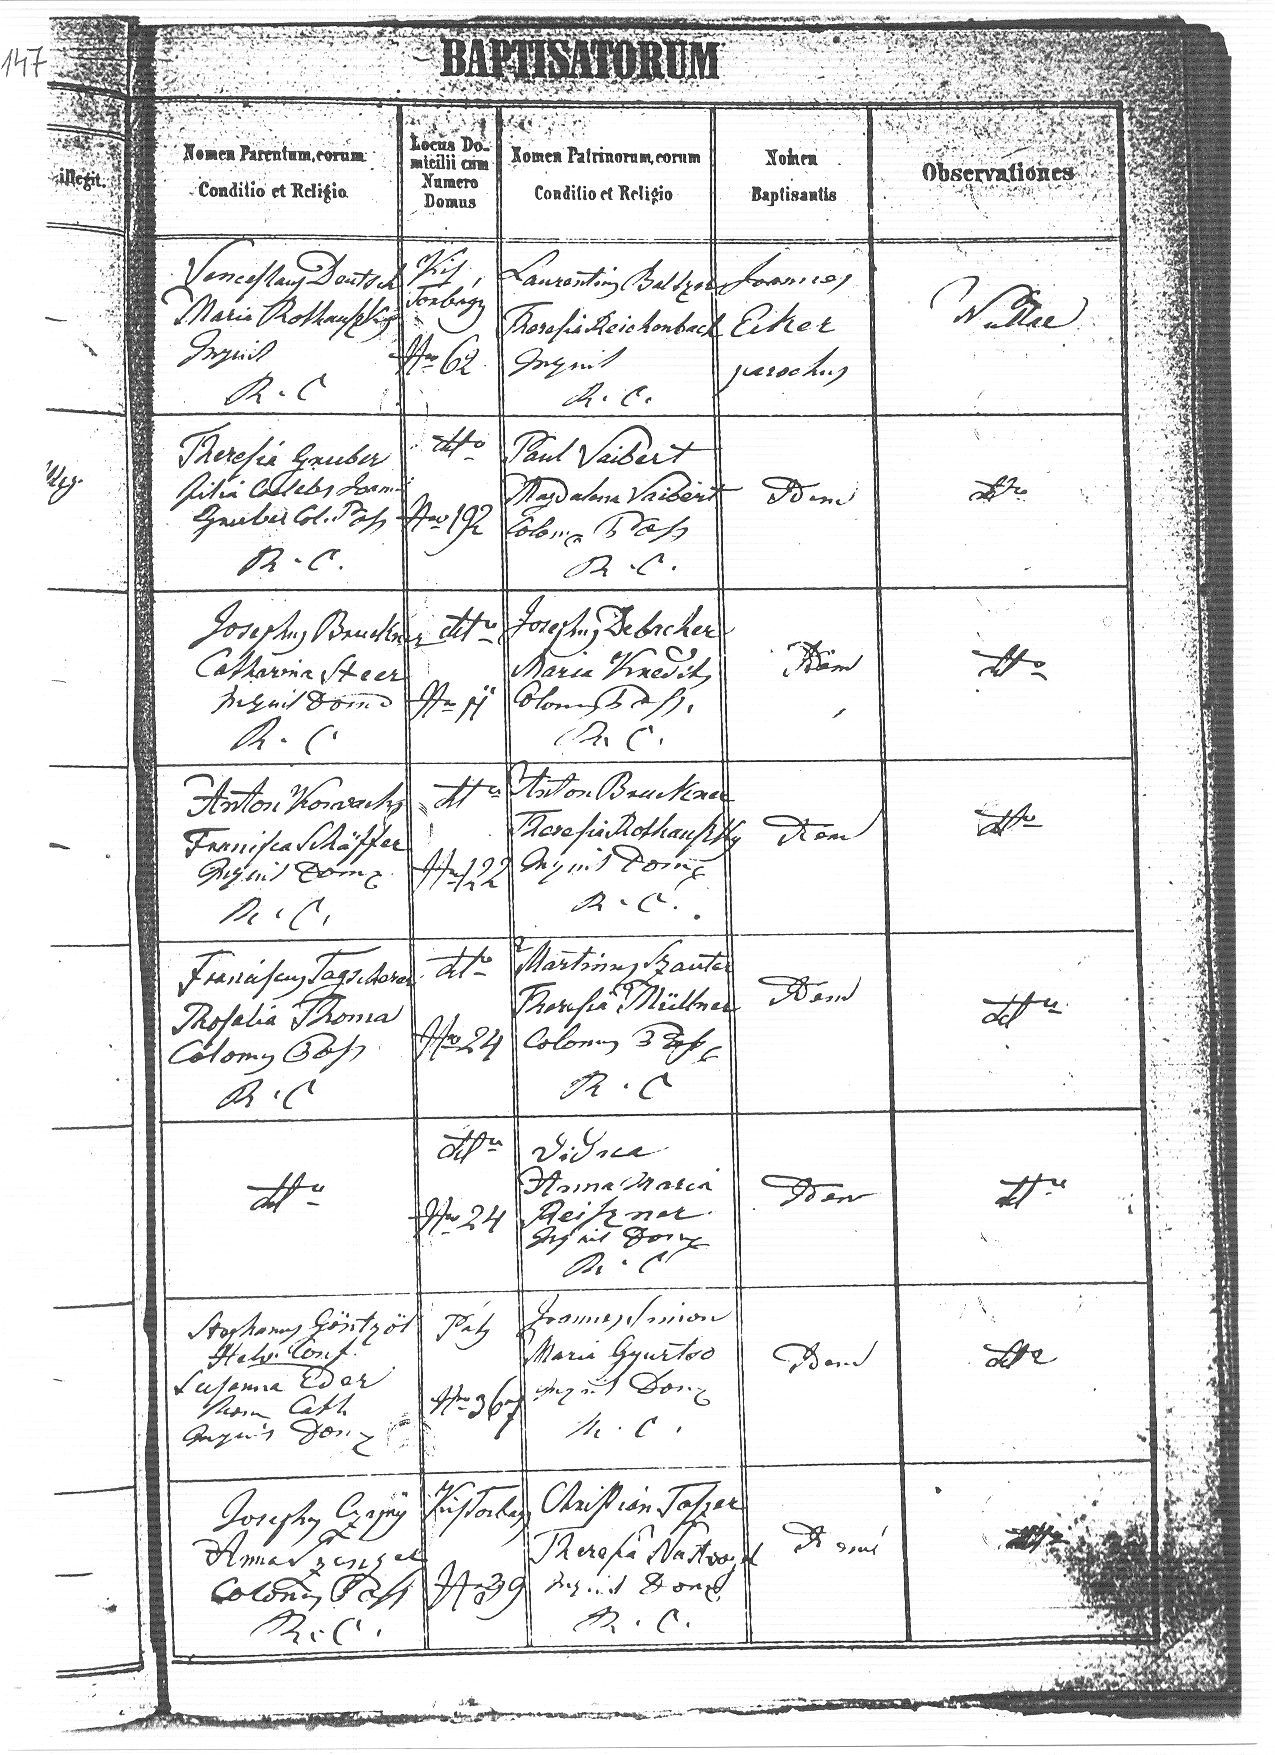 147
BAPTISATORUM
illegit.
Nomen Parentum, eorum
Conditio et Religio
Locus Do-
micilii cum
Numero
Domus
Nomen Patrinorum, eorum
Conditio et Religio
Nomen
Baptisantis
Observationes
Venceslaus Deutsch
Maria Rothaufzky
Inquil
R. C
Kis
Torbágy
Nro 62
Laurentius Baltzer
Theresia Reichenbach
Inquil
R. C.
Joannes
Eiker
parochus
Nullae
Illeg.
Theresia Gruber
filia Coelebs Joann
Gruber Col. Poss
R. C.
dtto
Nro 192
Paul Vaibert
Magdalena Vaibert
Colon Poss
R. C.
Idem
dtto
Josephus Bruckner
Catharina Steer
Inquil Dom
R. C
dtto
Nro 11
Josephus Debacher
Maria
Colonus Poss.
R. C.
Idem
dtto
Anton
Francisca Schäffer
Inquil Dom
R. C.
dtto
Nro 122
Anton Bruckner
Theresia Rothaufzky
Inquil Dom
R. C.
Idem
dtto
Franciscus Tagscherer
Rosalia Thoma
Colonus Poss
R. C
dtto
Nro 24
Martinus Szauter
Theresia Müllner
Colonus Poss
R. C
Idem
dtto
dtto
dtto
Nro 24
Vidua
Anna Maria
Reiszner
Inquil Dom
R. C
Idem
dtto
Stephanus
Helv. Conf.
Susanna Eder
Rom Cath
Inquil Dom
Páty
Nro 367
Joannes Simon
Maria Gyurtso
Inquil Dom
R. C.
Idem
dtto
Josephus
Anna
Colonus Poss
R. C.
Kis Torbágy
N 39
Christian
Theresia
Inquil Dom
R. C.
Idem
dtto